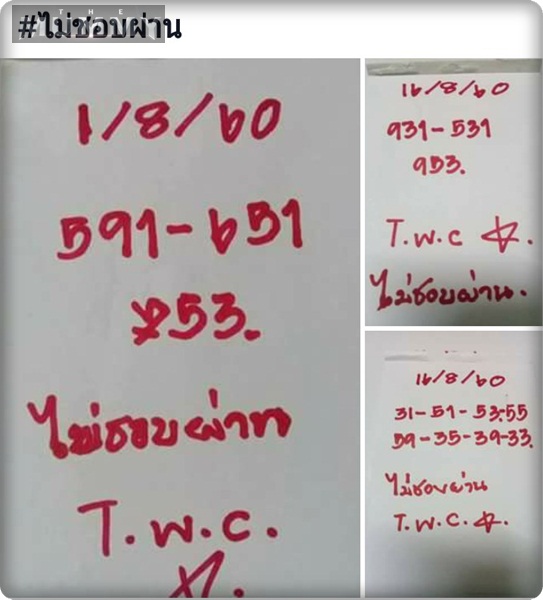 #ไม่ชอบผ่าน
THE
1/8/60
591-651
953.
ไม่ชอบผ่าน
T.W.C.
16/8/60
931-531
953.
T.W.C
ไม่ชอบผ่าน.
16/8/60
31-51-53-55
59-35-39-33.
ไม่ชอบผ่าน
T.W.C.